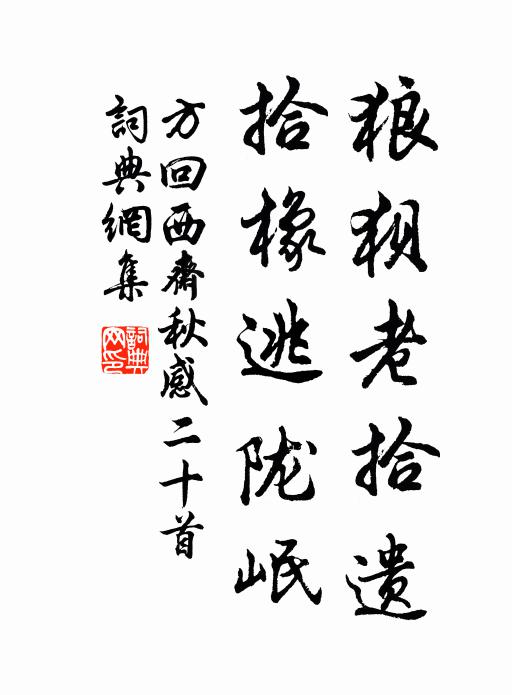 狼狈老拾遗
拾橡逃陇岷
方回西齋秋感二十首
詞典網集
詞典网印